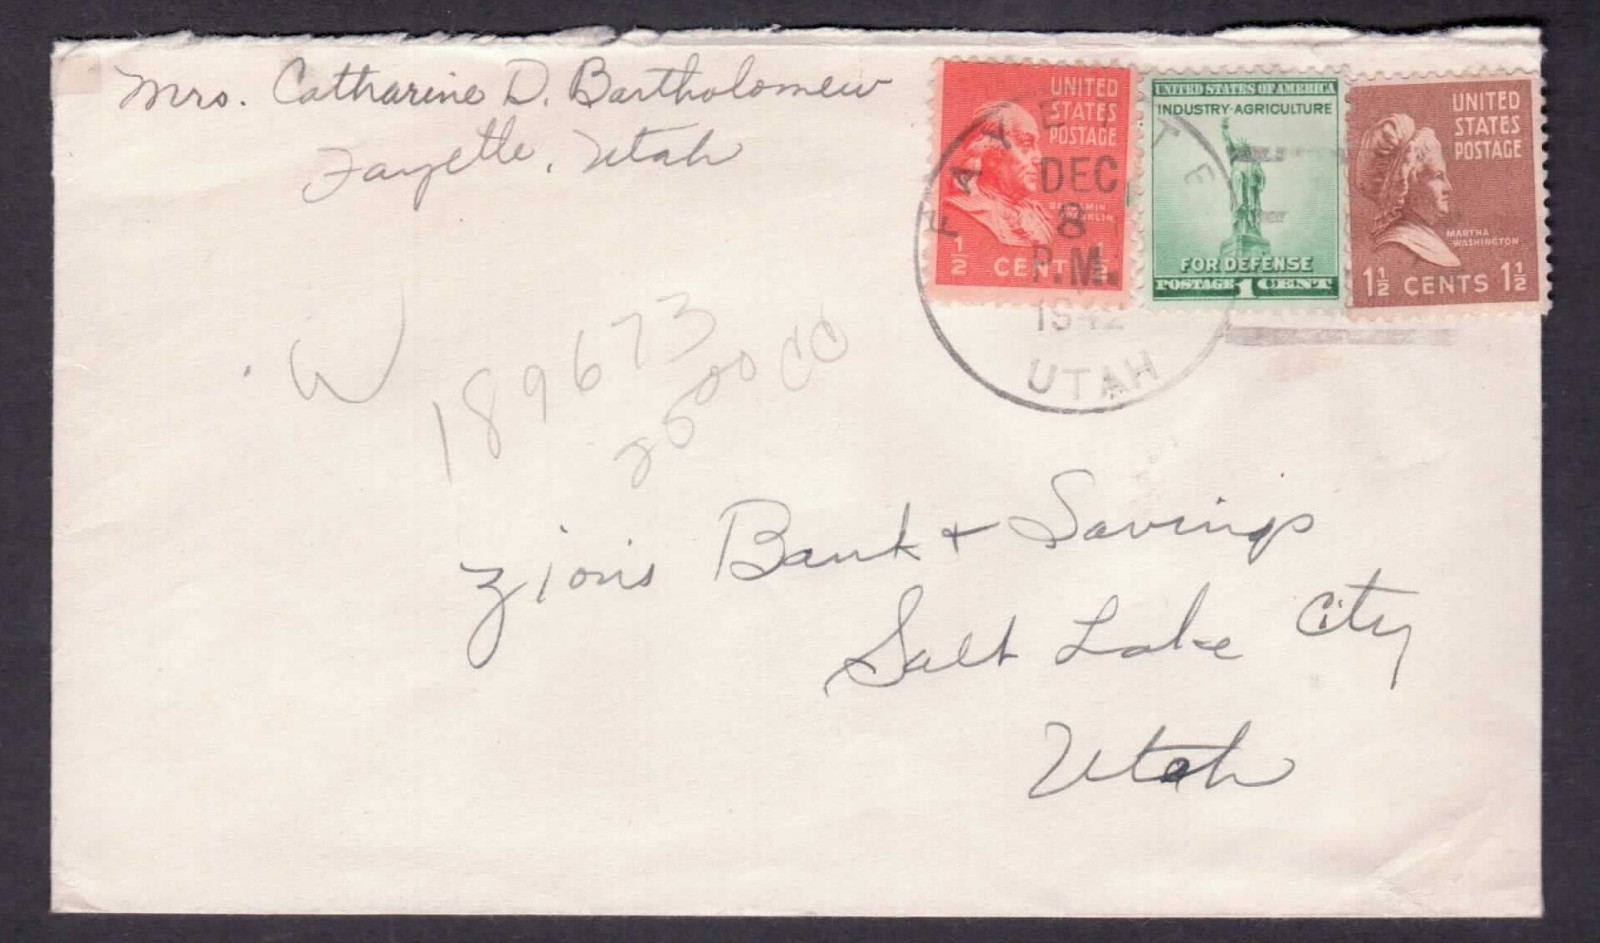 Mrs. Catharine D. Bartholomew
Fayette, Utah
UNITED
STATES
POSTAGE
BENJAMIN
FRANKLIN
1/2 CENT 1/2
UNITED STATES OF AMERICA
INDUSTRY-AGRICULTURE
FOR DEFENSE
POSTAGE 1 CENT
UNITED
STATES
POSTAGE
MARTHA
WASHINGTON
1 1/2 CENTS 1 1/2
FAYETTE
DEC
8
P.M.
1942
UTAH
W
189673
Zions Bank + Savings
Salt Lake City
Utah